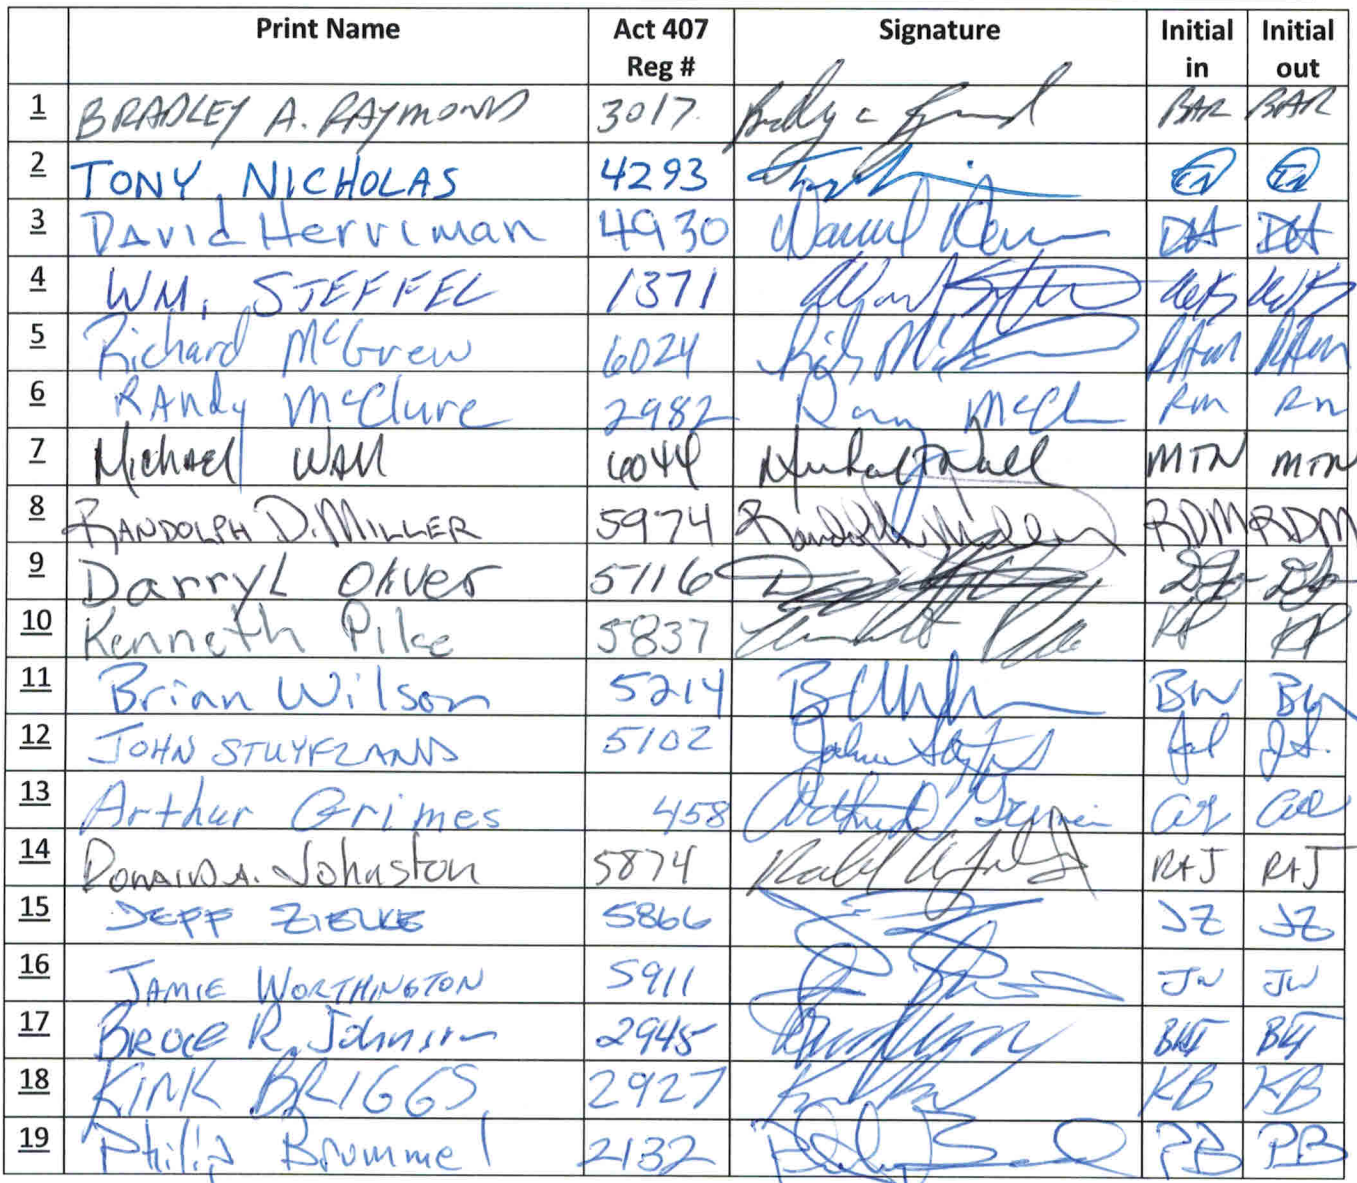 Print Name Act 407 Reg # Signature Initial in Initial out
1 BRADLEY A. RAYMOND 3017 BAR BAR
2 TONY NICHOLAS 4293 TN TN
3 David Herriman 4930 DH DH
4 WM. STEFFEL 1371
5 Richard McGrew 6024 RAM RAM
6 RANdy McClure 2982 Rm Rm
7 Michael WAll 6044 Michael Wall MTW MTW
8 RANDOLPH D. MILLER 5974 Randolph Miller RDM RDM
9 DarryL Oliver 5116
10 Kenneth Pike 5837 KP KP
11 Brian Wilson 5214 BW BW
12 JOHN STUYFZAND 5102 J.S.
13 Arthur Grimes 458
14 DONALD A. Johnston 5874 DAJ DAJ
15 JEFF ZIELKE 5866 JZ JZ
16 JAMIE WORTHINGTON 5911 JW JW
17 BRUCE R. Johnson 2945 BRJ BRJ
18 KIRK BRIGGS 2927 KB KB
19 Philip Brummel 2132 PB PB